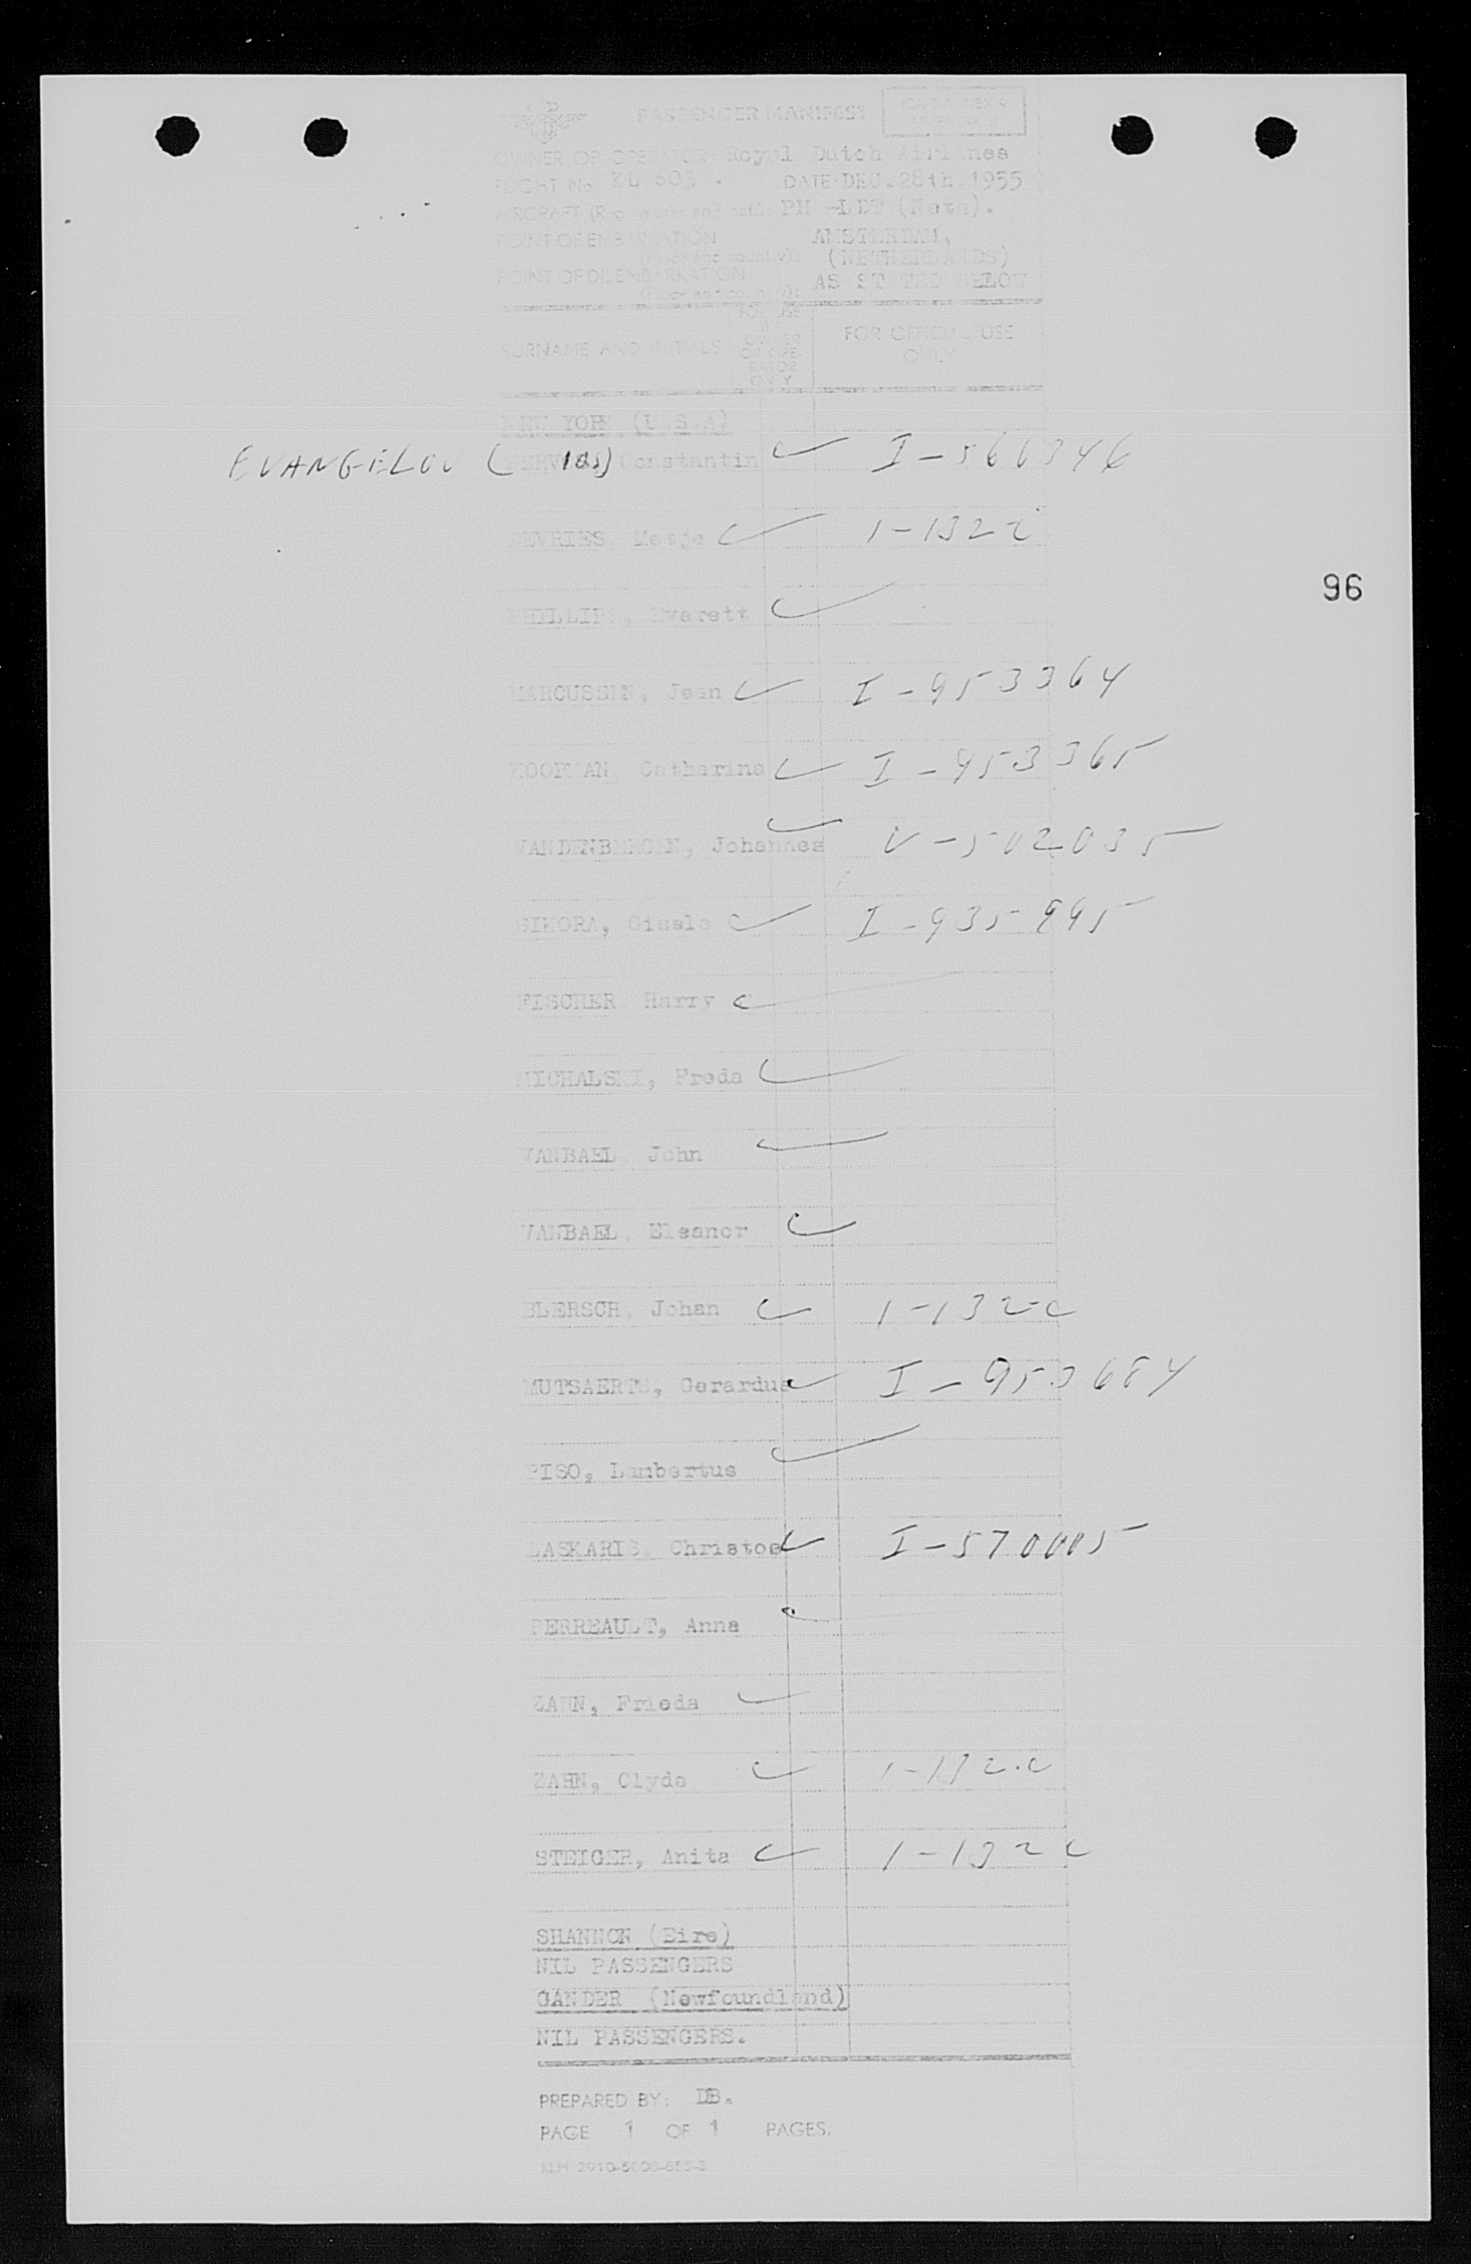 PASSENGER MANIFEST
OWNER OR OPERATOR Royal Dutch Airlines
FLIGHT No KL 603 . DATE DEC. 28th 1955
AIRCRAFT PH -LDT (Neta).
POINT OF EMBARKATION AMSTERDAM,
(NETHERLANDS)
POINT OF DISEMBARKATION AS STATED BELOW
SURNAME AND INITIALS FOR OFFICIAL USE
ONLY
NEW YORK (U.S.A)
EVANGELOU ( Constantin I-566346
DEVRIES, Metje 1-132 c
PHILLIPS, Everett
MARCUSSEN, Jean I-953364
KOOPMAN, Catharina I-953365
VANDENBERGEN, Johannes V-502035
SIKORA, Gisela I-935995
FISCHER Harry
MICHALSKI, Freda
VANBAEL John
VANBAEL, Eleanor
BLERSCH, Johan 1-132-c
MUTSAERTS, Gerardus I-953684
PISO, Lambertus
LASKARIS, Christos I-570005
PERREAULT, Anna
ZAHN, Frieda
ZAHN, Clyde 1-132.c
STEIGER, Anita 1-132 c
96
SHANNON (Eire)
NIL PASSENGERS
GANDER (Newfoundland)
NIL PASSENGERS.
PREPARED BY: DB.
PAGE 1 OF 1 PAGES.